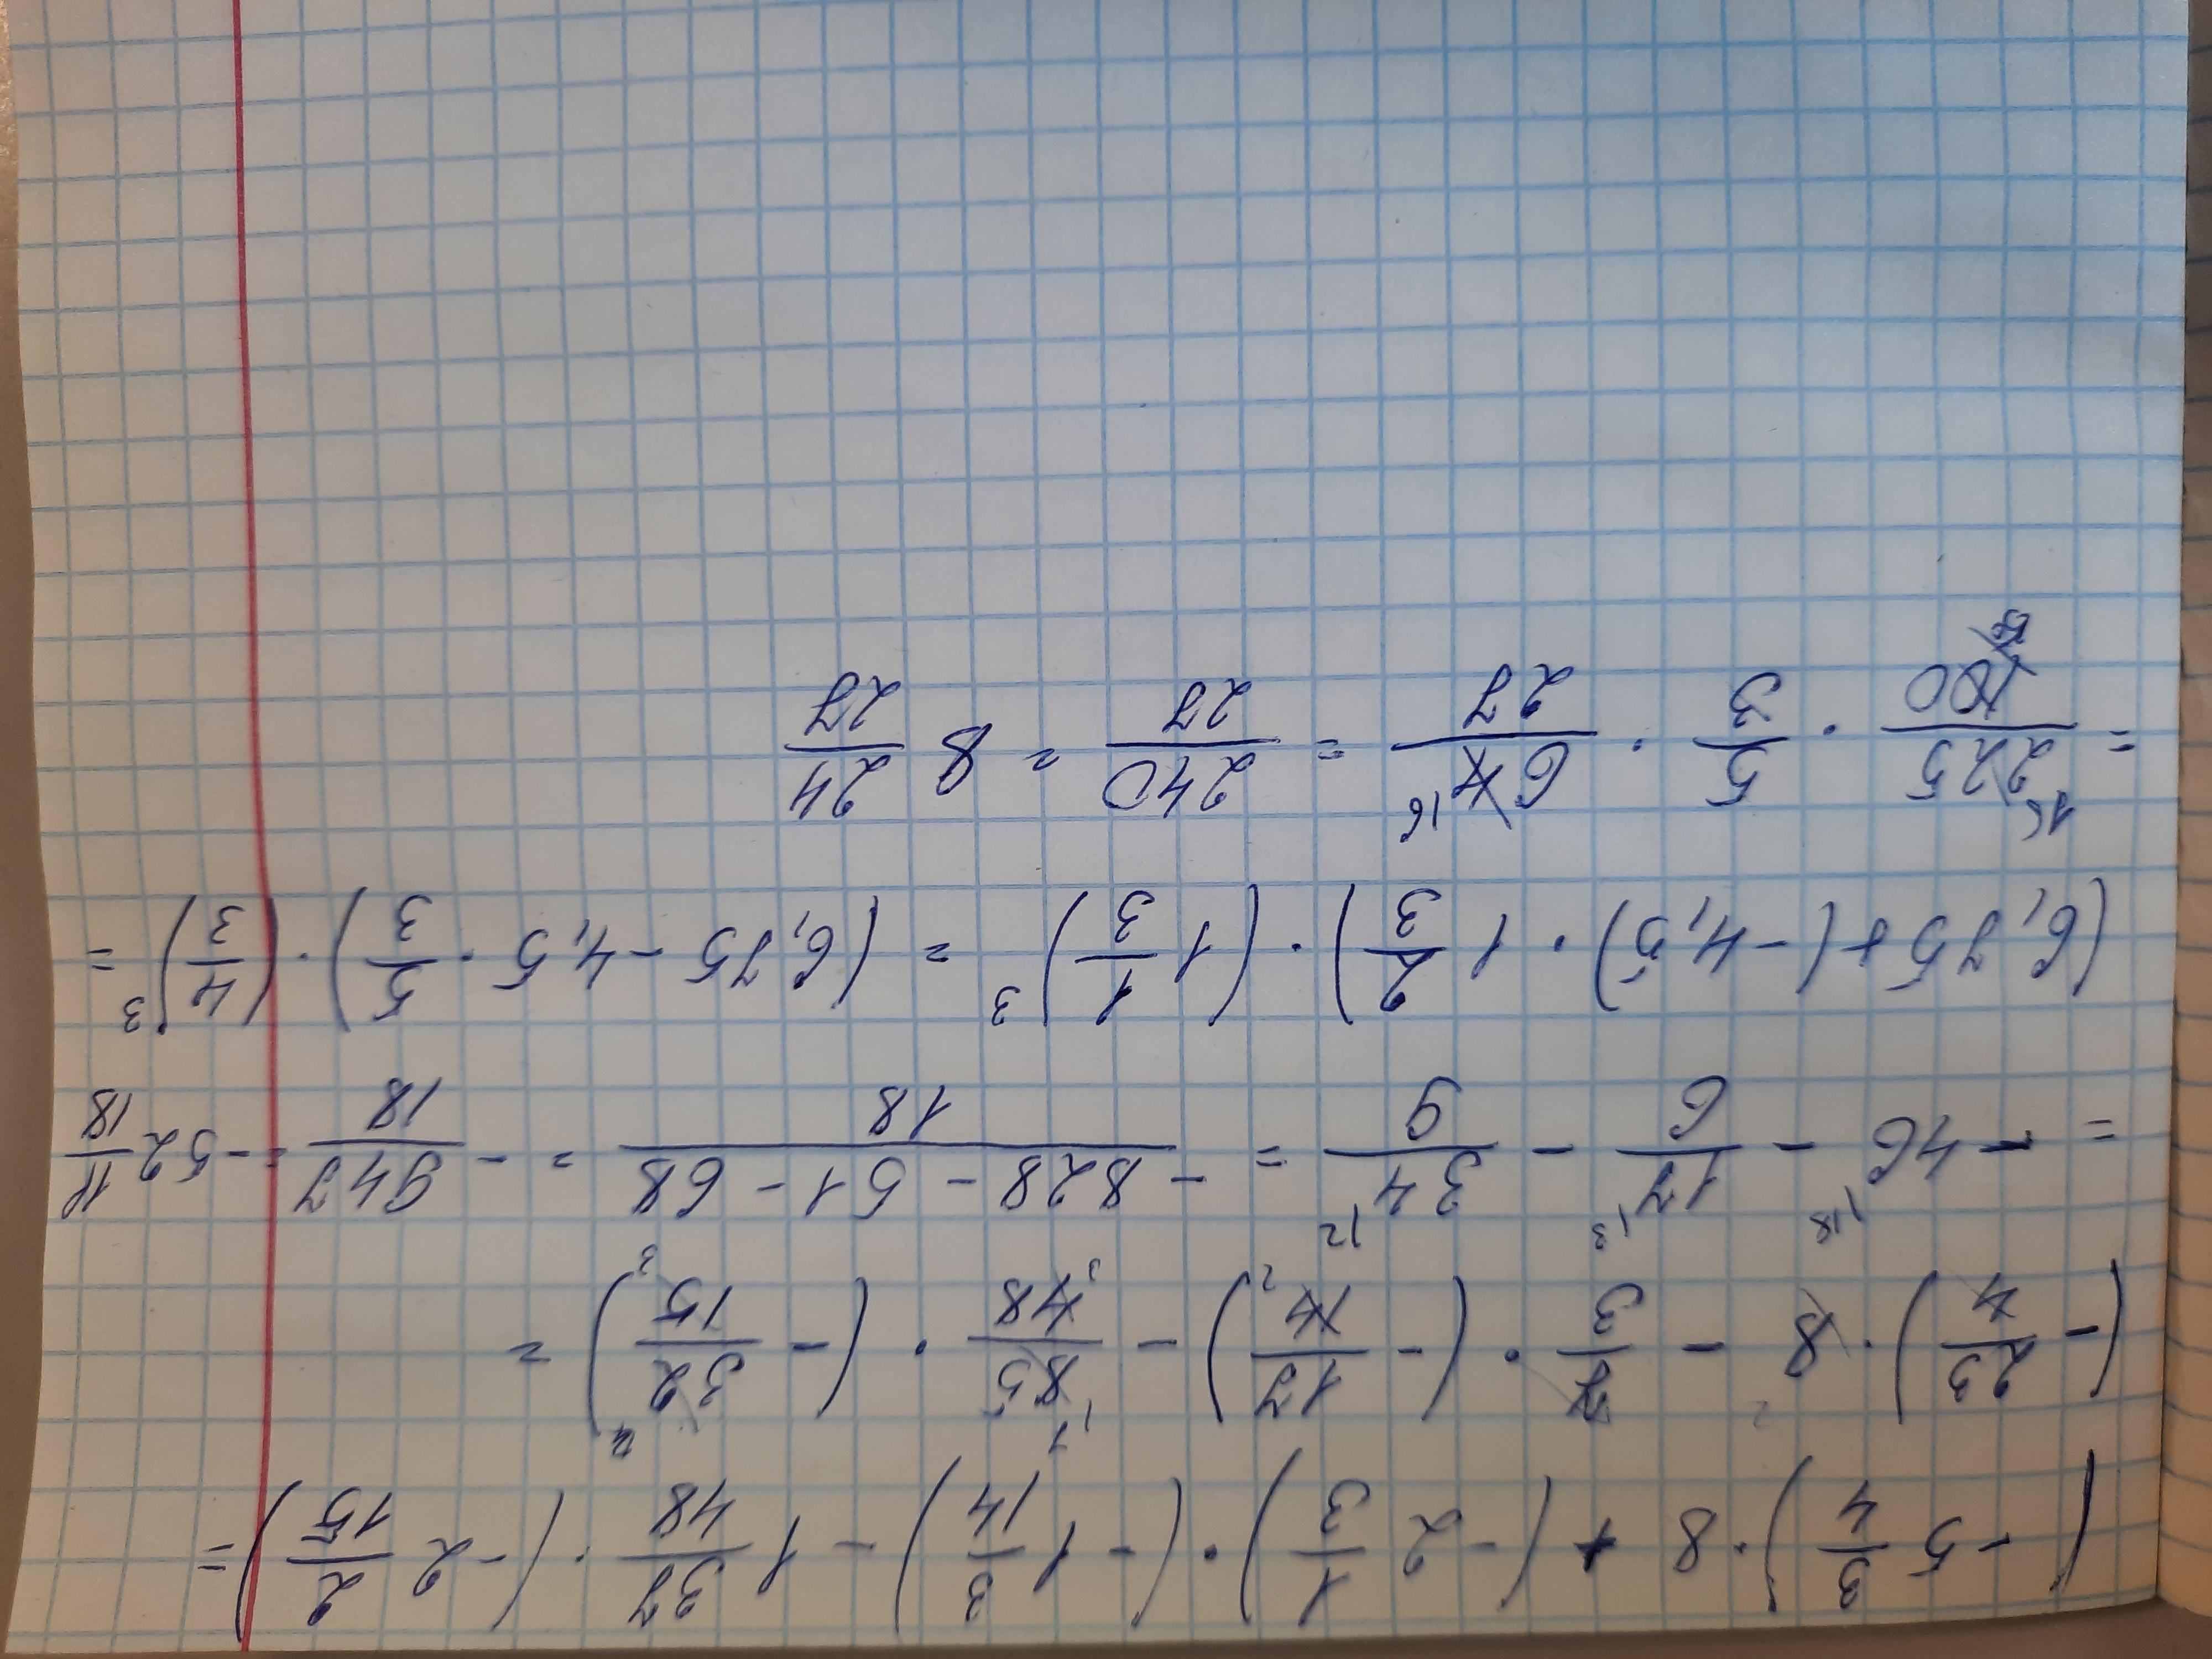 (-5 3/4) · 8 + (-2 1/3) · (-1 3/14) - 1 37/48 · (-2 2/15) =
(-23/4) · 8 - 7/3 · (-17/14) - 85/48 · (-32/15) =
= -46 - 17/6 - 34/9 = -828 - 51 - 68/18 = -947/18 = -52 11/18
(6,75 + (-4,5) · 1 2/3) · (1 1/3)³ = (6,75 - 4,5 · 5/3) · (4/3)³ =
= 225/100 · 5/3 · 64/27 = 240/27 = 8 24/27